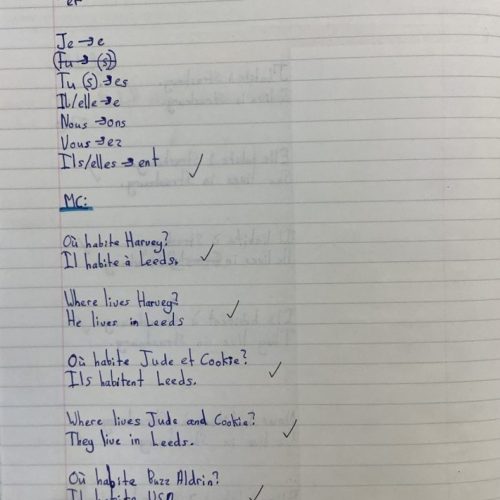 er
Je → e
Tu → (s)
Tu (s) → es
Il/elle → e
Nous → ons
Vous → ez
Ils/elles → ent
MC:
Où habite Harvey?
Il habite à Leeds.
Where lives Harvey?
He lives in Leeds
Où habite Jude et Cookie?
Ils habitent Leeds.
Where lives Jude and Cookie?
They live in Leeds.
Où habite Buzz Aldrin?
Il habite USA